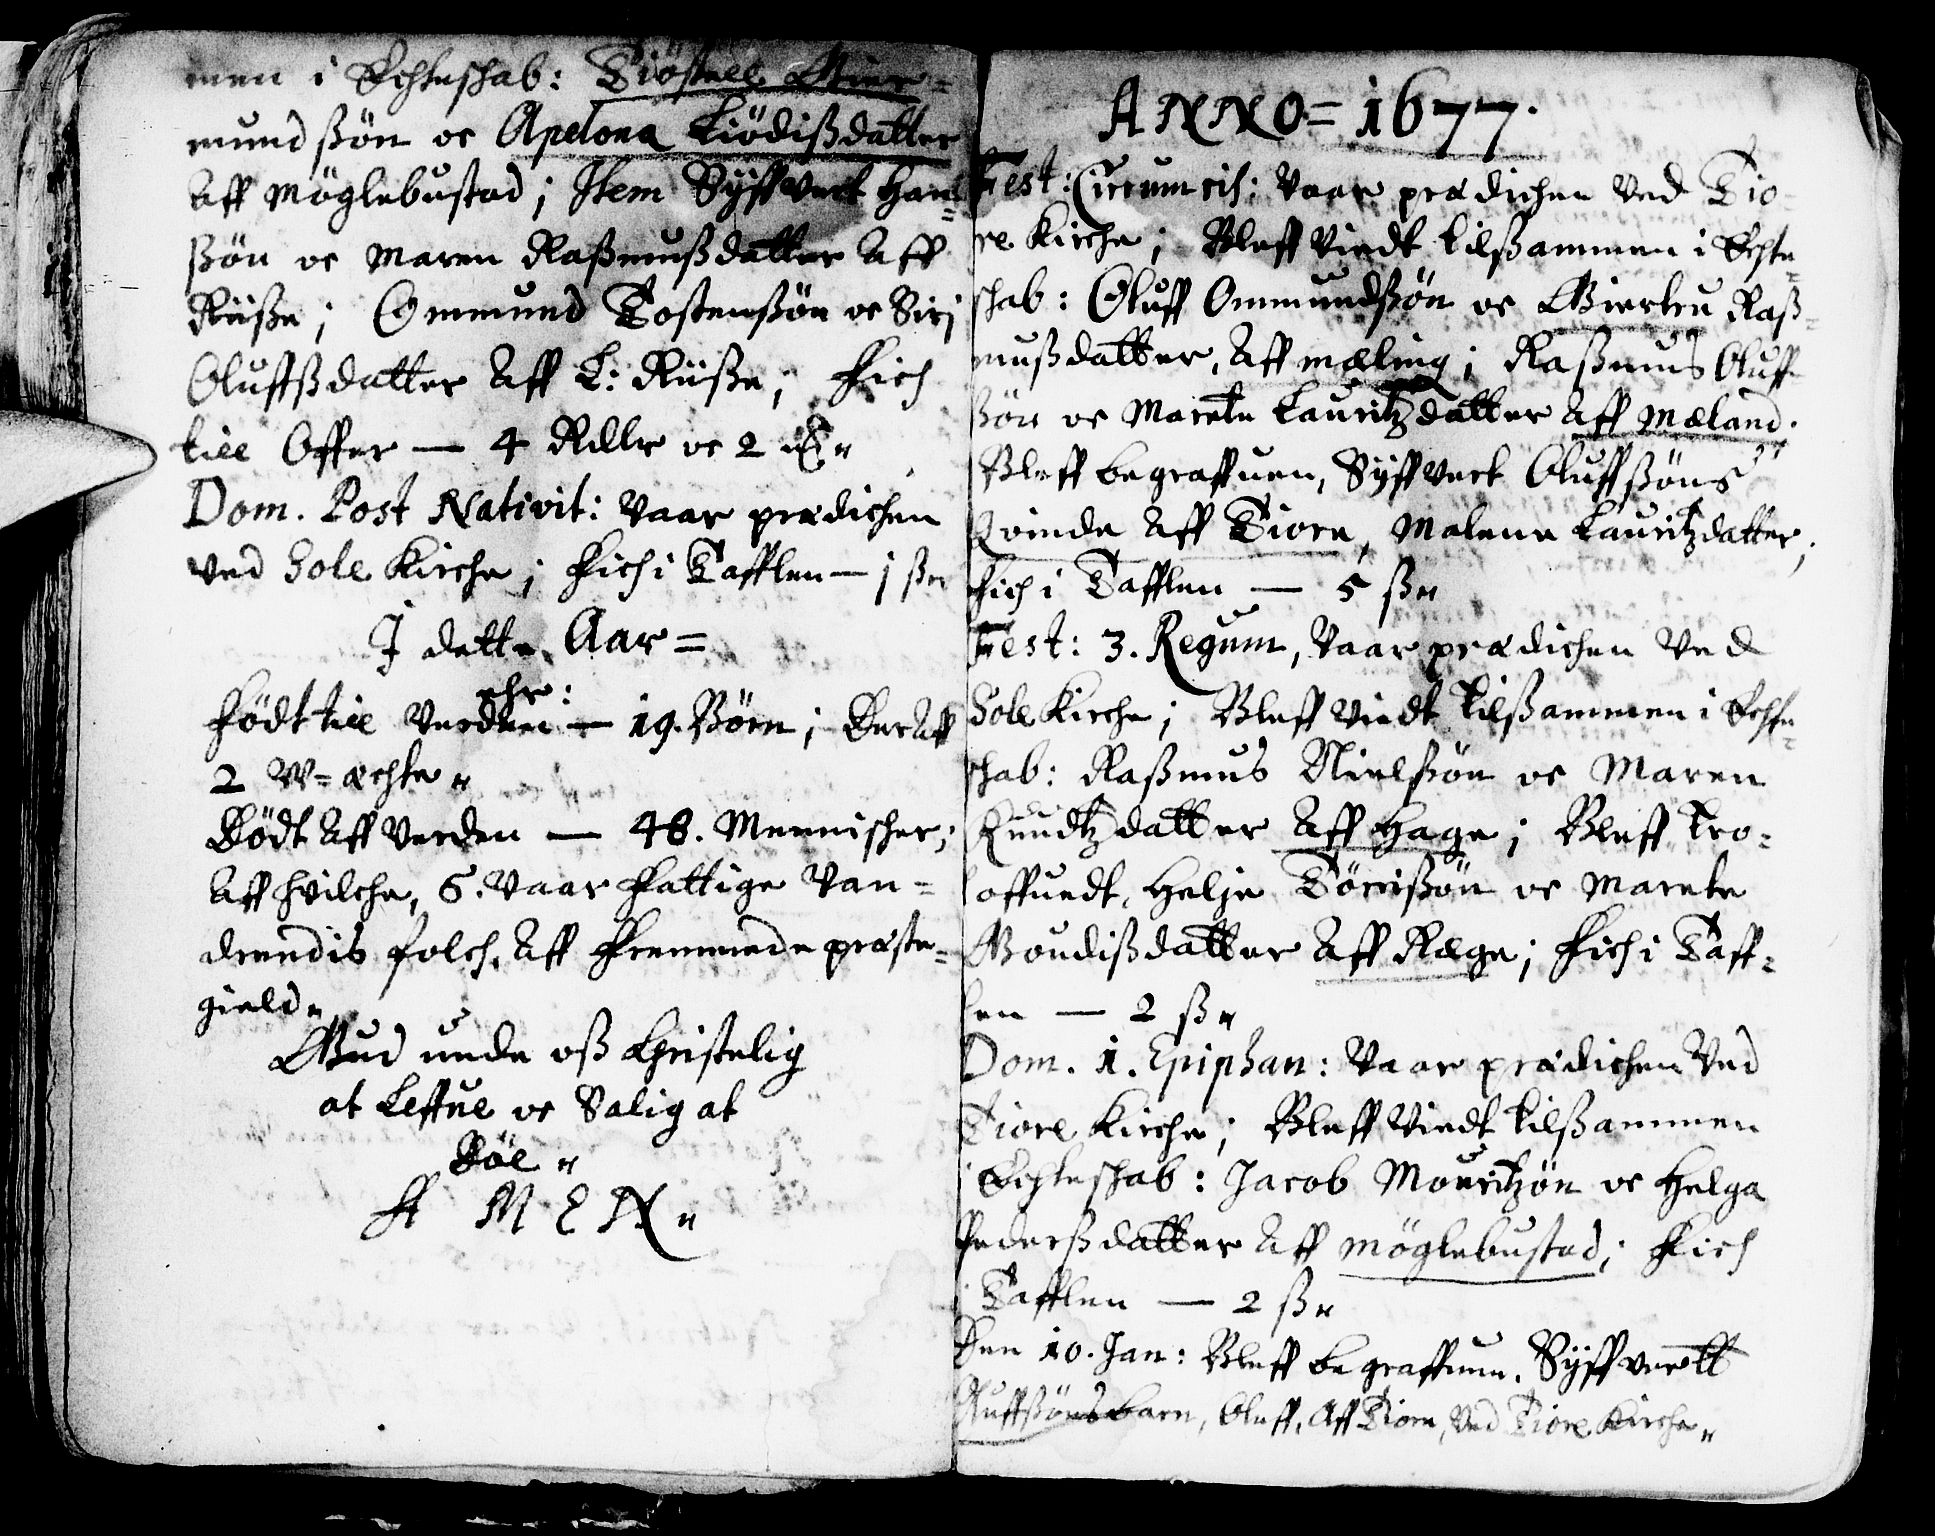 men i Echteschab: Tiöstell Gier=
mundßön oc Apelona Liödißdatter
aff Möglebustad; Item Syffvert Han=
ßön oc Maren Raßmußdatter aff
Riiße; Ommund Tostenßön oc Siri
Oluffßdatter aff L: Riiße; Fich
till Offer — 4 Rdlr oc 2
Dom. Post Nativit: Vaar prædichen
ved Sole Kirche; Fich i Tafflen — j ß
I dette Aar =
ehr:
Født till Verden — 19. Børn; Der aff
2 W=æchte
Dødt aff Verden — 48. Mennischer;
aff hvilche, 6. vaar fattige van=
drendis folch, aff fremmede præste=
gield
Gud unde oß Christelig
at leffue oc Salig at
Döe
A M E N
ANNO = 1677.
Fest: Circumcis: Vaar prædichen ved Tio-
re Kirche; Bleff Viedt tilßammen i Echte=
schab: Oluff Ommundßön oc Giertru Raß=
mußdatter, aff Mæling; Raßmus Oluff=
ßön oc Marete Lauritzdatter aff Mæland.
Bleff begraffuen, Syffvert Oluffßöns
Qvinde aff Tiore, Malene Lauritzdatter;
Fich i Tafflen — 5 ß
Fest: 3. Regum, Vaar prædichen ved
Sole Kirche; Bleff Viedt tilßammen i Echte=
schab: Raßmus Nielßön oc Maren
Knudtzdatter aff Hage; Bleff tro=
loffuedt, Helje Törrißön oc Marete
Goudißdatter aff Ræge; Fich i Taff=
len — 2 ß
Dom. 1. Epiphan: Vaar prædichen ved
Tiore Kirche; Bleff Viedt tilßammen
i Echteschab: Jacob Mouritzön oc Helga
Pederßdatter aff Möglebustad; Fich
i Tafflen — 2 ß
Den 10. Jan: Bleff begraffuen, Syffvertt
Oluffßöns barn, Oluff, aff Tiore, ved Tiore Kirche